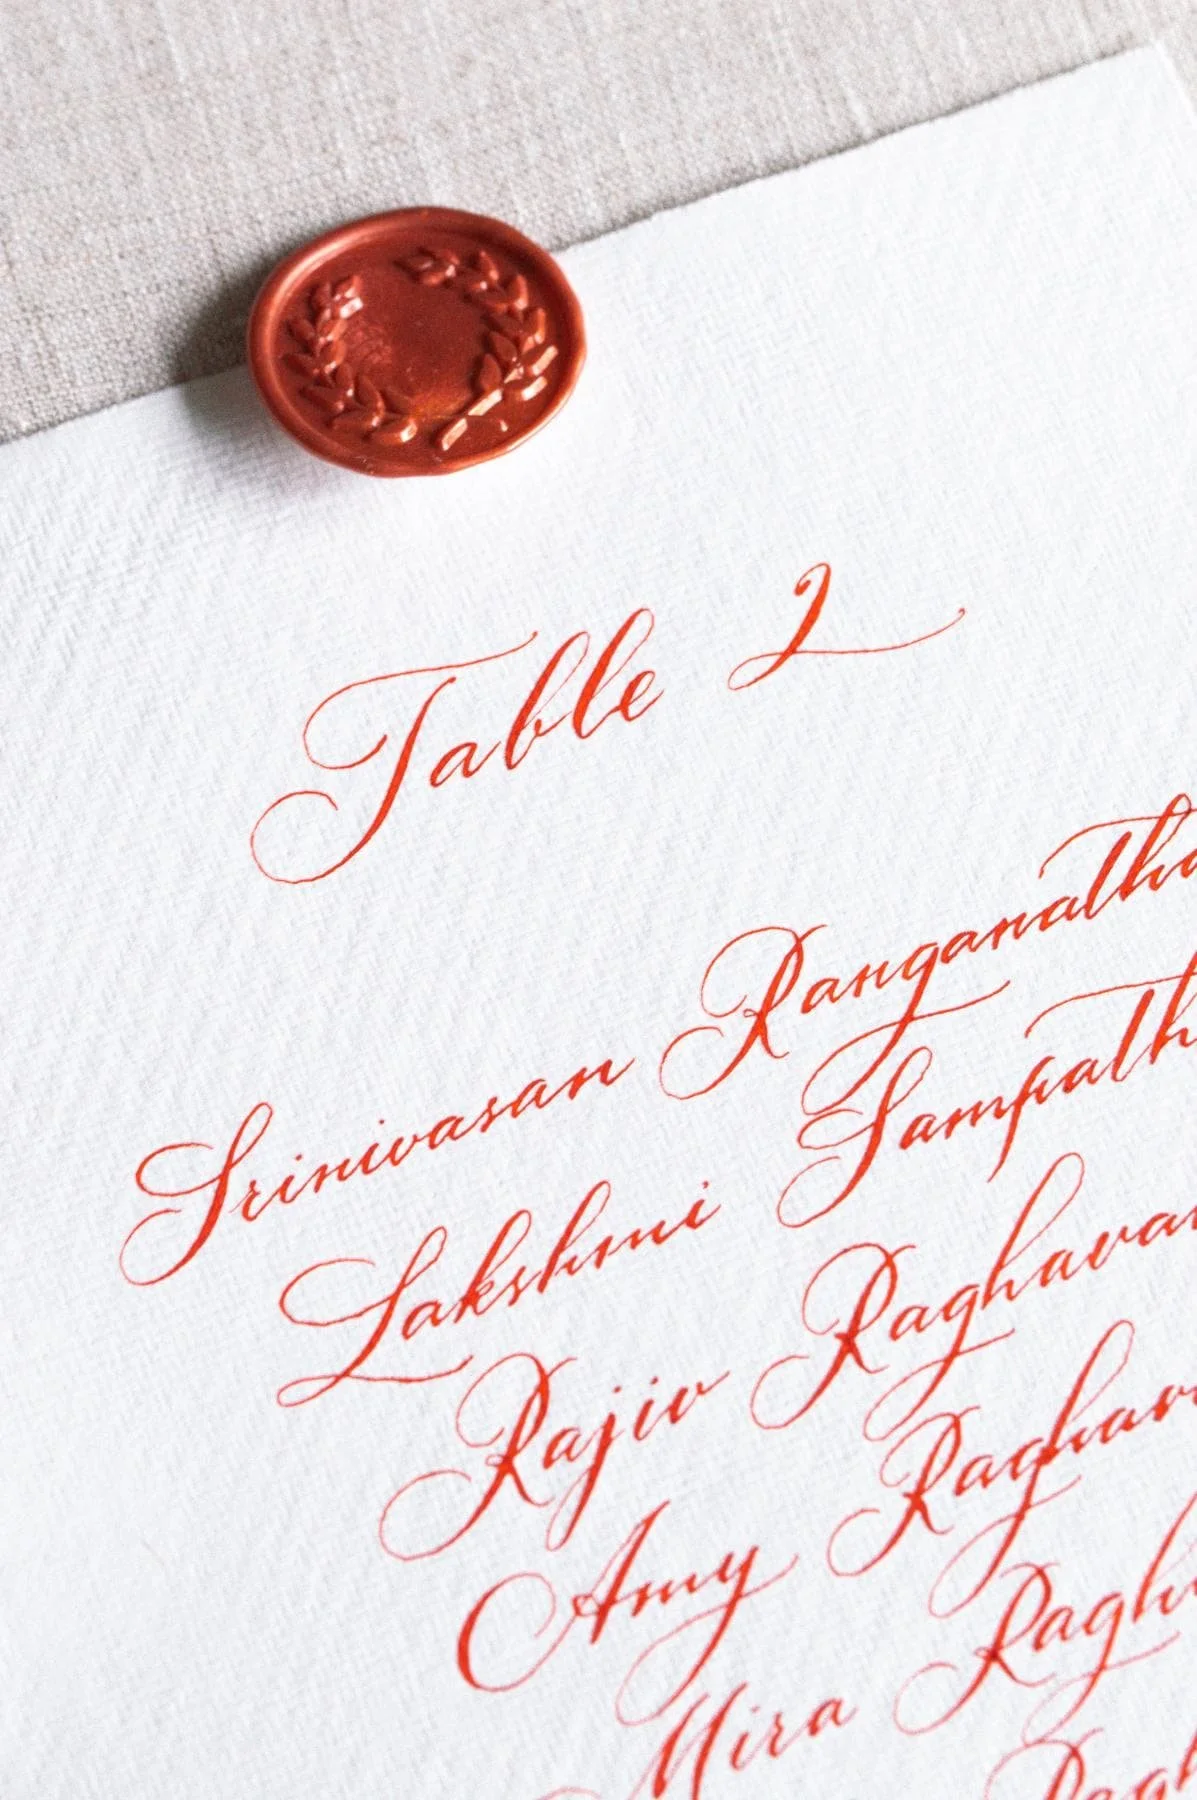 Table 2
Srinivasan Ranganatha
Lakshmi Sampath
Rajiv Raghava
Amy Raghav
Mira Ragh
Ragh